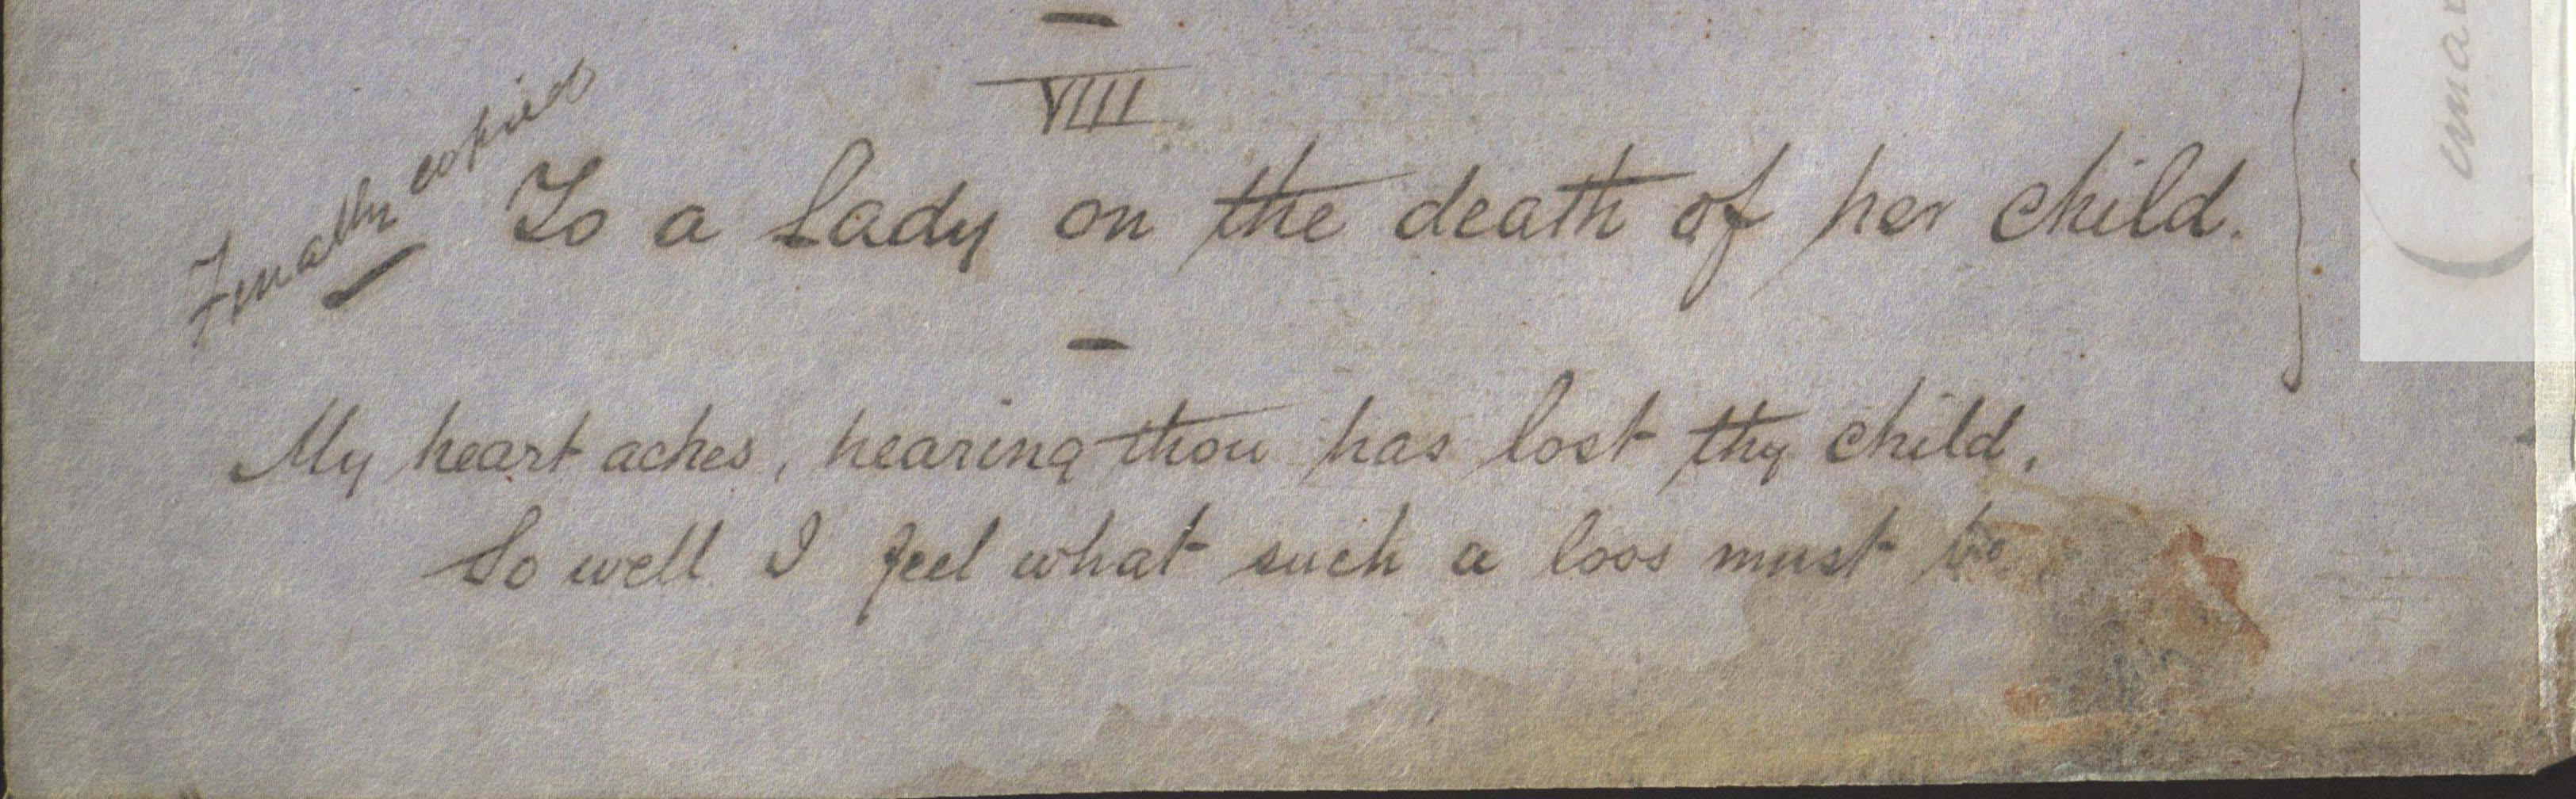 VIII
Finally copied
To a Lady on the death of her child.
My heart aches, hearing thou has lost thy child,
So well I feel what such a loss must be,